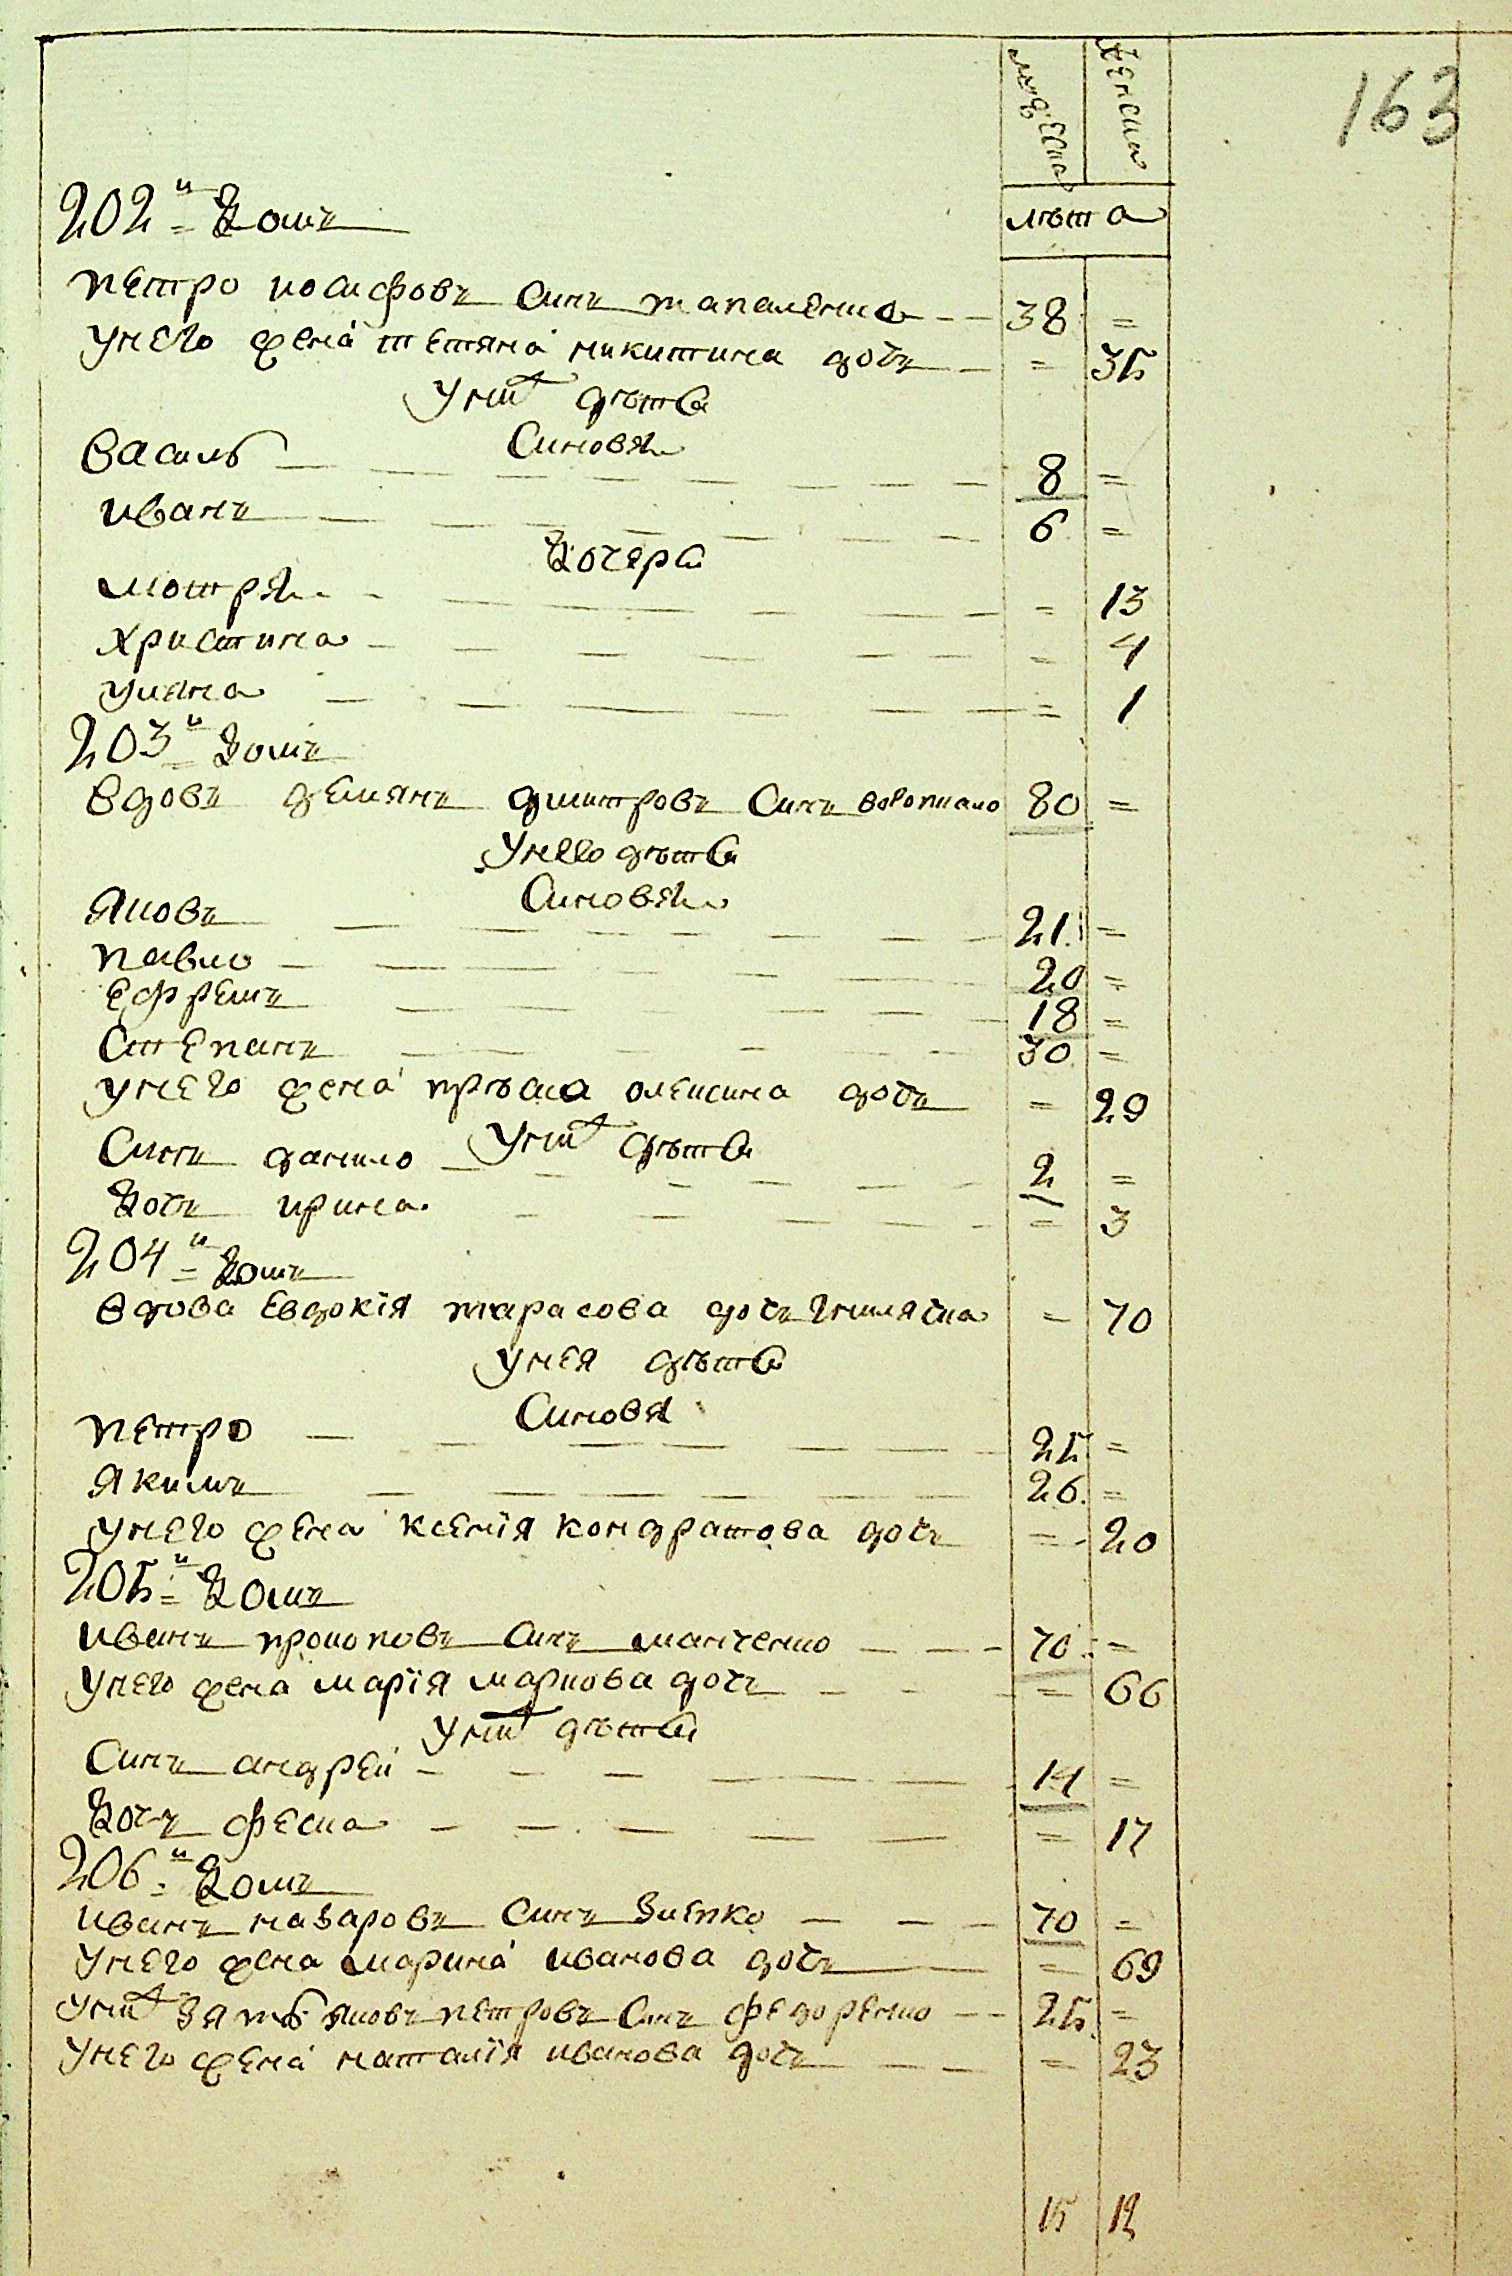 163
мужеска женска
лѣта
202й домъ
петро иосифовъ синъ тапаленко 38 =
унего жена тетяна никитина дочъ = 35
унихъ дѣти
Синовя
Василь 8 =
иванъ 6 =
Дочери
мотря = 13
христина = 4
уляна = 1
203й домъ
вдовъ демянъ дмитровъ Синъ 80 =
Унего дѣти
Синовя
Яковъ 21 =
павло 20 =
Ефремъ 18 =
Степанъ 30 =
унего жена прѣска олексина дочъ = 29
Унихъ дѣти
Синъ данило 2 =
Дочъ ирина = 3
204й домъ
вдова Евдокія тарасова дочъ = 70
унея дѣти
Синовя
петро 25 =
Якимъ 26 =
унего жена ксенія кондратова дочъ = 20
205й домъ
иванъ прокоповъ синъ манченко 70 =
унего жена марія маркова дочъ = 66
унихъ дѣти
Синъ андрей 14 =
Дочъ феска = 17
206й домъ
иванъ назаровъ синъ 70 =
унего жена марина иванова дочъ = 69
унихъ зять яковъ петровъ Синъ федоренко 25 =
унего жена наталія иванова дочъ = 23
15 12